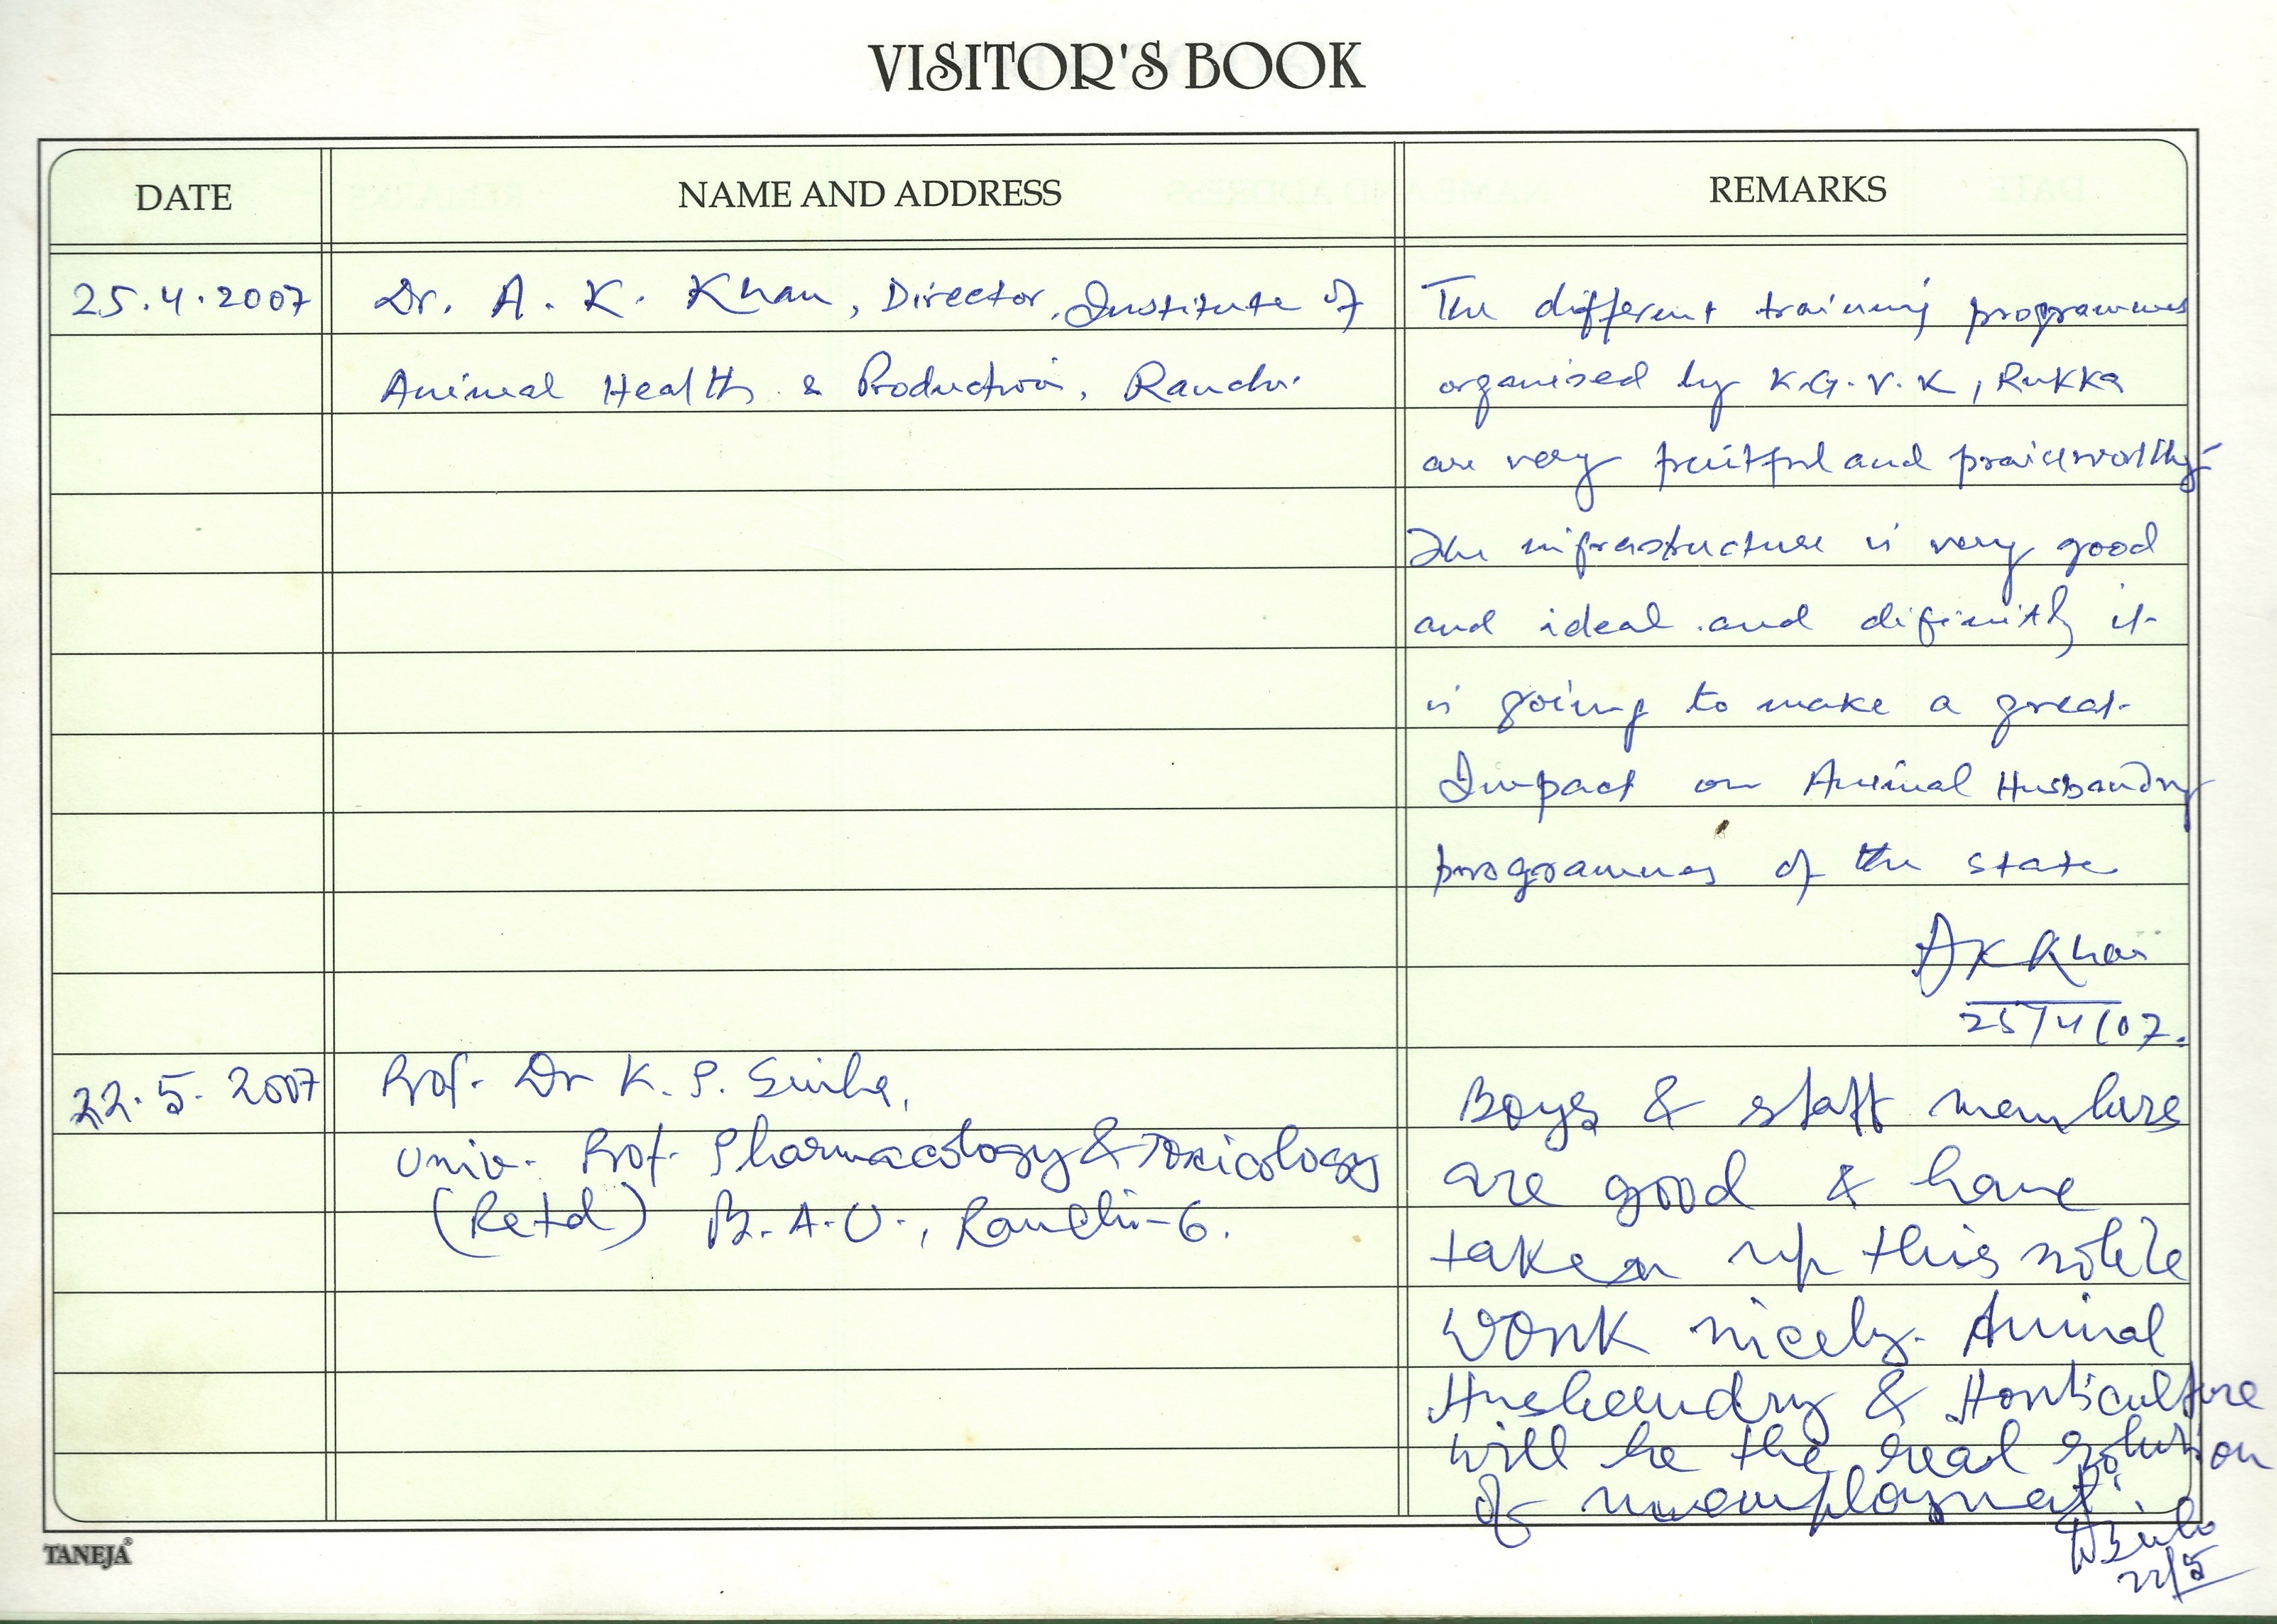 VISITOR'S BOOK
DATE
NAME AND ADDRESS
REMARKS
25.4.2007
Dr. A. K. Khan, Director, Institute of
Animal Health & Production, Ranchi
The different training programmes
organised by K.G.V.K, Rukka
are very fruitful and praiseworthy
The infrastructure is very good
and ideal and difinitly it
is going to make a great
Impact on Animal Husbandry
programmes of the state
AK Khan
25/4/07.
22.5.2007
Prof. Dr K. P. Sinha,
Univ. Prof. Pharmacology & Toxicology
(Retd) B.A.U., Ranchi-6.
Boys & staff members
are good & have
taken up this noble
work nicely. Animal
Husbandry & Horticulture
will be the real solution
of unemployment.
22/5
TANEJA®